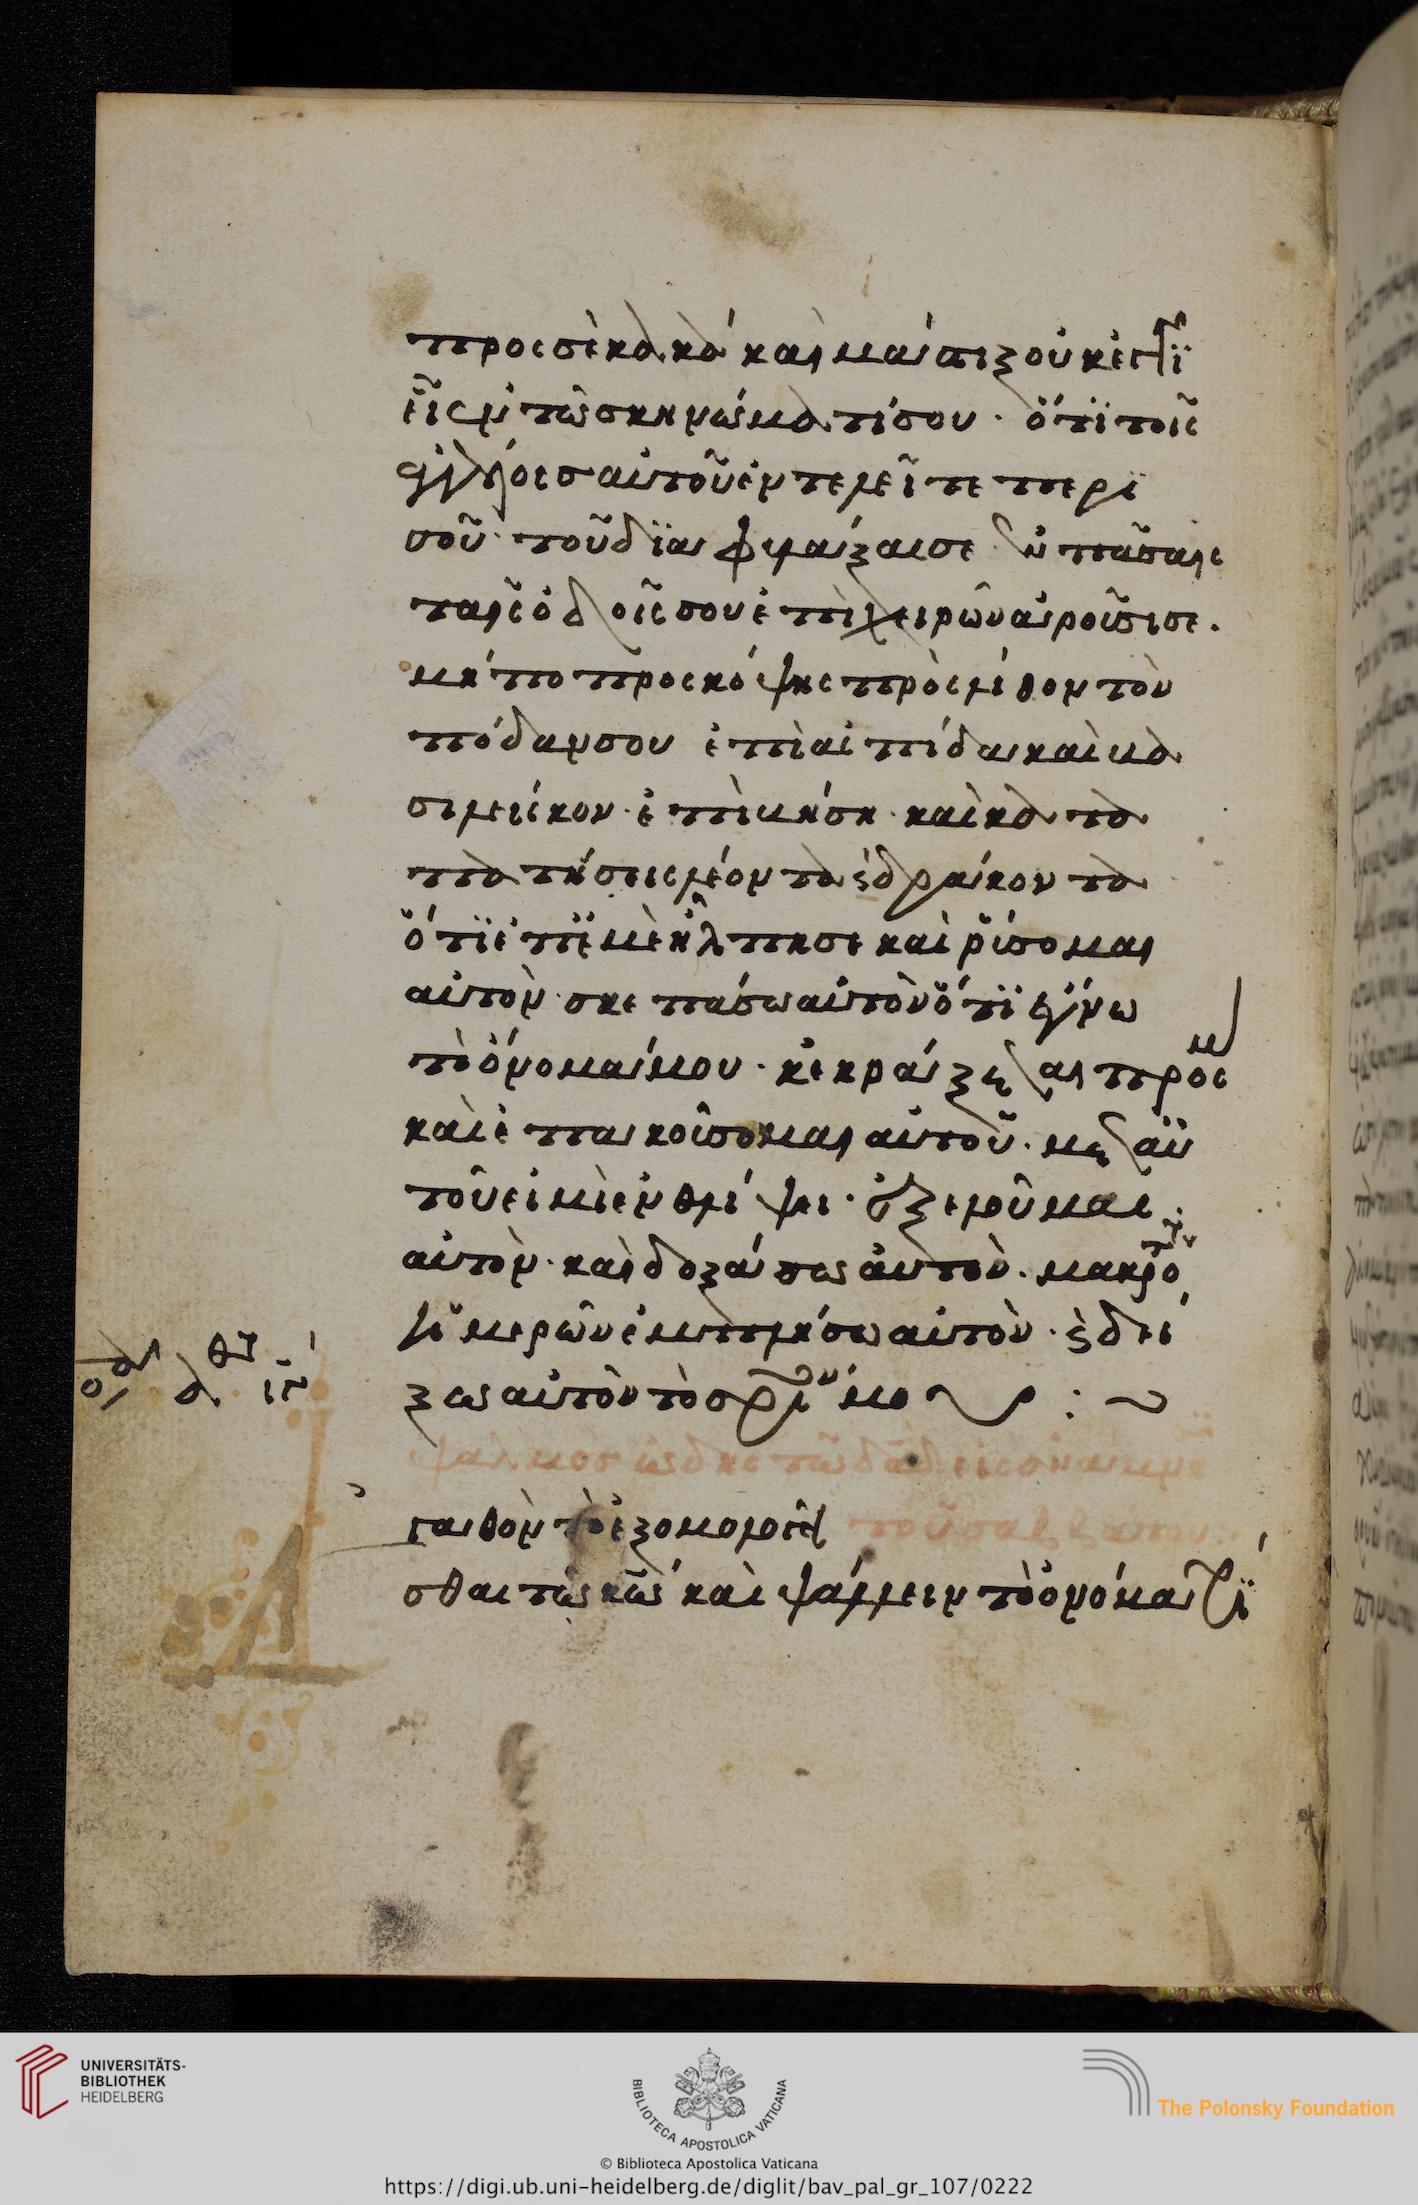 προς σὲ κακά καὶ μάστιξ οὐκ ἐγγιεῖ
ἐν τῶ σκηνώματί σου · ὅτι τοῖς
ἀγγέλοις αὐτοῦ ἐντελεῖτε περὶ
σοῦ · τοῦ διαφυλάξαι σε ἐν πάσαις
ταῖς ὁδοῖς σου ἐπὶ χειρῶν ἀροῦσι σε ·
μήπο προσκόψης πρὸς λίθον τὸν
πόδαν σου ἐπὶ ἀσπίδα καὶ βα
σιλείσκον · ἐπιβήση · καὶ κατα
πατήσεις λέοντα ἐ δράκοντα
ὅτι ἐπ' ἐμὲ ἤλπησε καὶ ῥύσομαι
αὐτὸν · σκεπάσω αὐτὸν ὅτι ἔγνω
τὸ ὄνομά μου · κεκράξεται προς μ
καὶ ἐπακούσομαι αὐτοῦ · μετ αὐ
τοῦ εἰμὶ ἐν θλίψει · ἐξελοῦμαι
αὐτὸν · καὶ δοξάσω αὐτὸν · μακρότητα
ἡμερῶν ἐμπλήσω αὐτὸν · ἐ δεί
ξω αὐτὸν τὸ σρίον μου :~
ψαλμὸς ὠδῆς τῶ δαδ εἰς τὴν ἡμέραν
τοῦ σαββάτου ·
Ἀγαθὸν τὸ ἐξομολογεῖ
σθαι τῶ κω καὶ ψάλλειν τὸ ὀνόματί
UNIVERSITÄTS-
BIBLIOTHEK
HEIDELBERG
BIBLIOTECA APOSTOLICA VATICANA
The Polonsky Foundation
© Biblioteca Apostolica Vaticana
https://digi.ub.uni-heidelberg.de/diglit/bav_pal_gr_107/0222